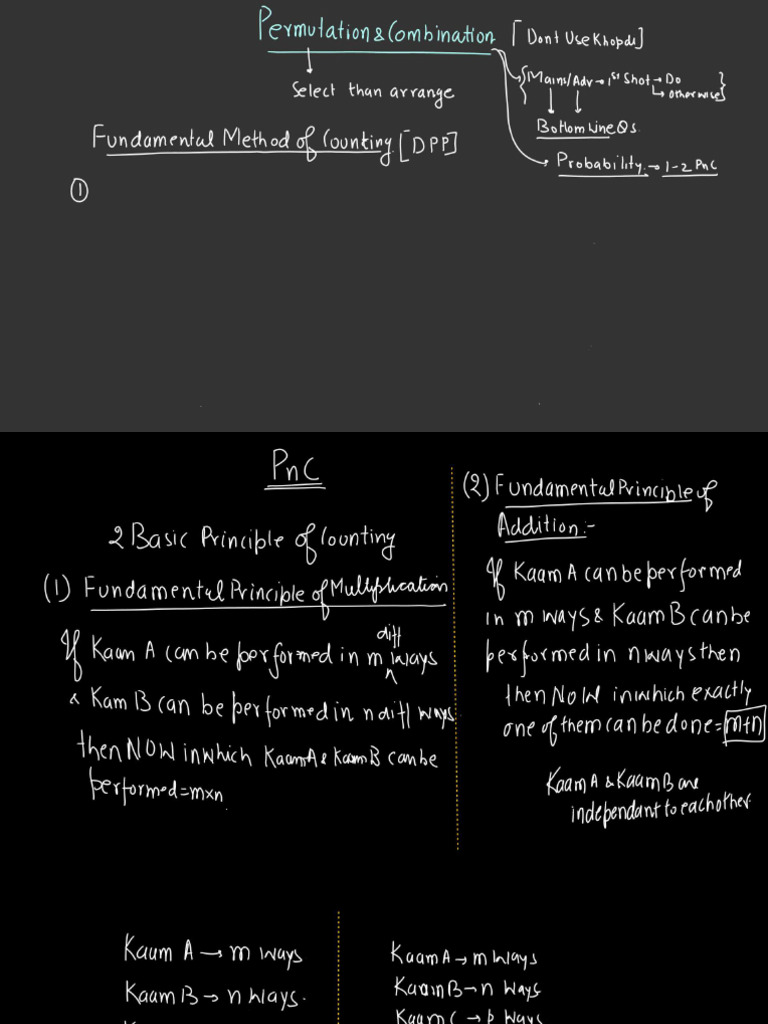 Permutation & Combination [Dont Use Khopdi]
Select than arrange
{Mains/Adv → 1st Shot → Do
→ otherwise}
Bottom Line Qs.
Probability → 1-2 PnC
Fundamental Method of Counting [DPP]
①
PnC
2 Basic Principle of Counting
(1) Fundamental Principle of Multiplication
If Kaam A can be performed in m diff ways
& Kam B can be performed in n diff ways
then NOW in which Kaam A & Kaam B can be
performed = m×n
(2) Fundamental Principle of
Addition:-
If Kaam A can be performed
in m ways & Kaam B can be
performed in n ways then
then NOW in which exactly
one of them can be done = m+n
Kaam A & Kaam B are
independant to each other.
Kaam A → m ways
Kaam B → n ways.
Kaam A → m ways
Kaam B → n ways
Kaam C → p ways